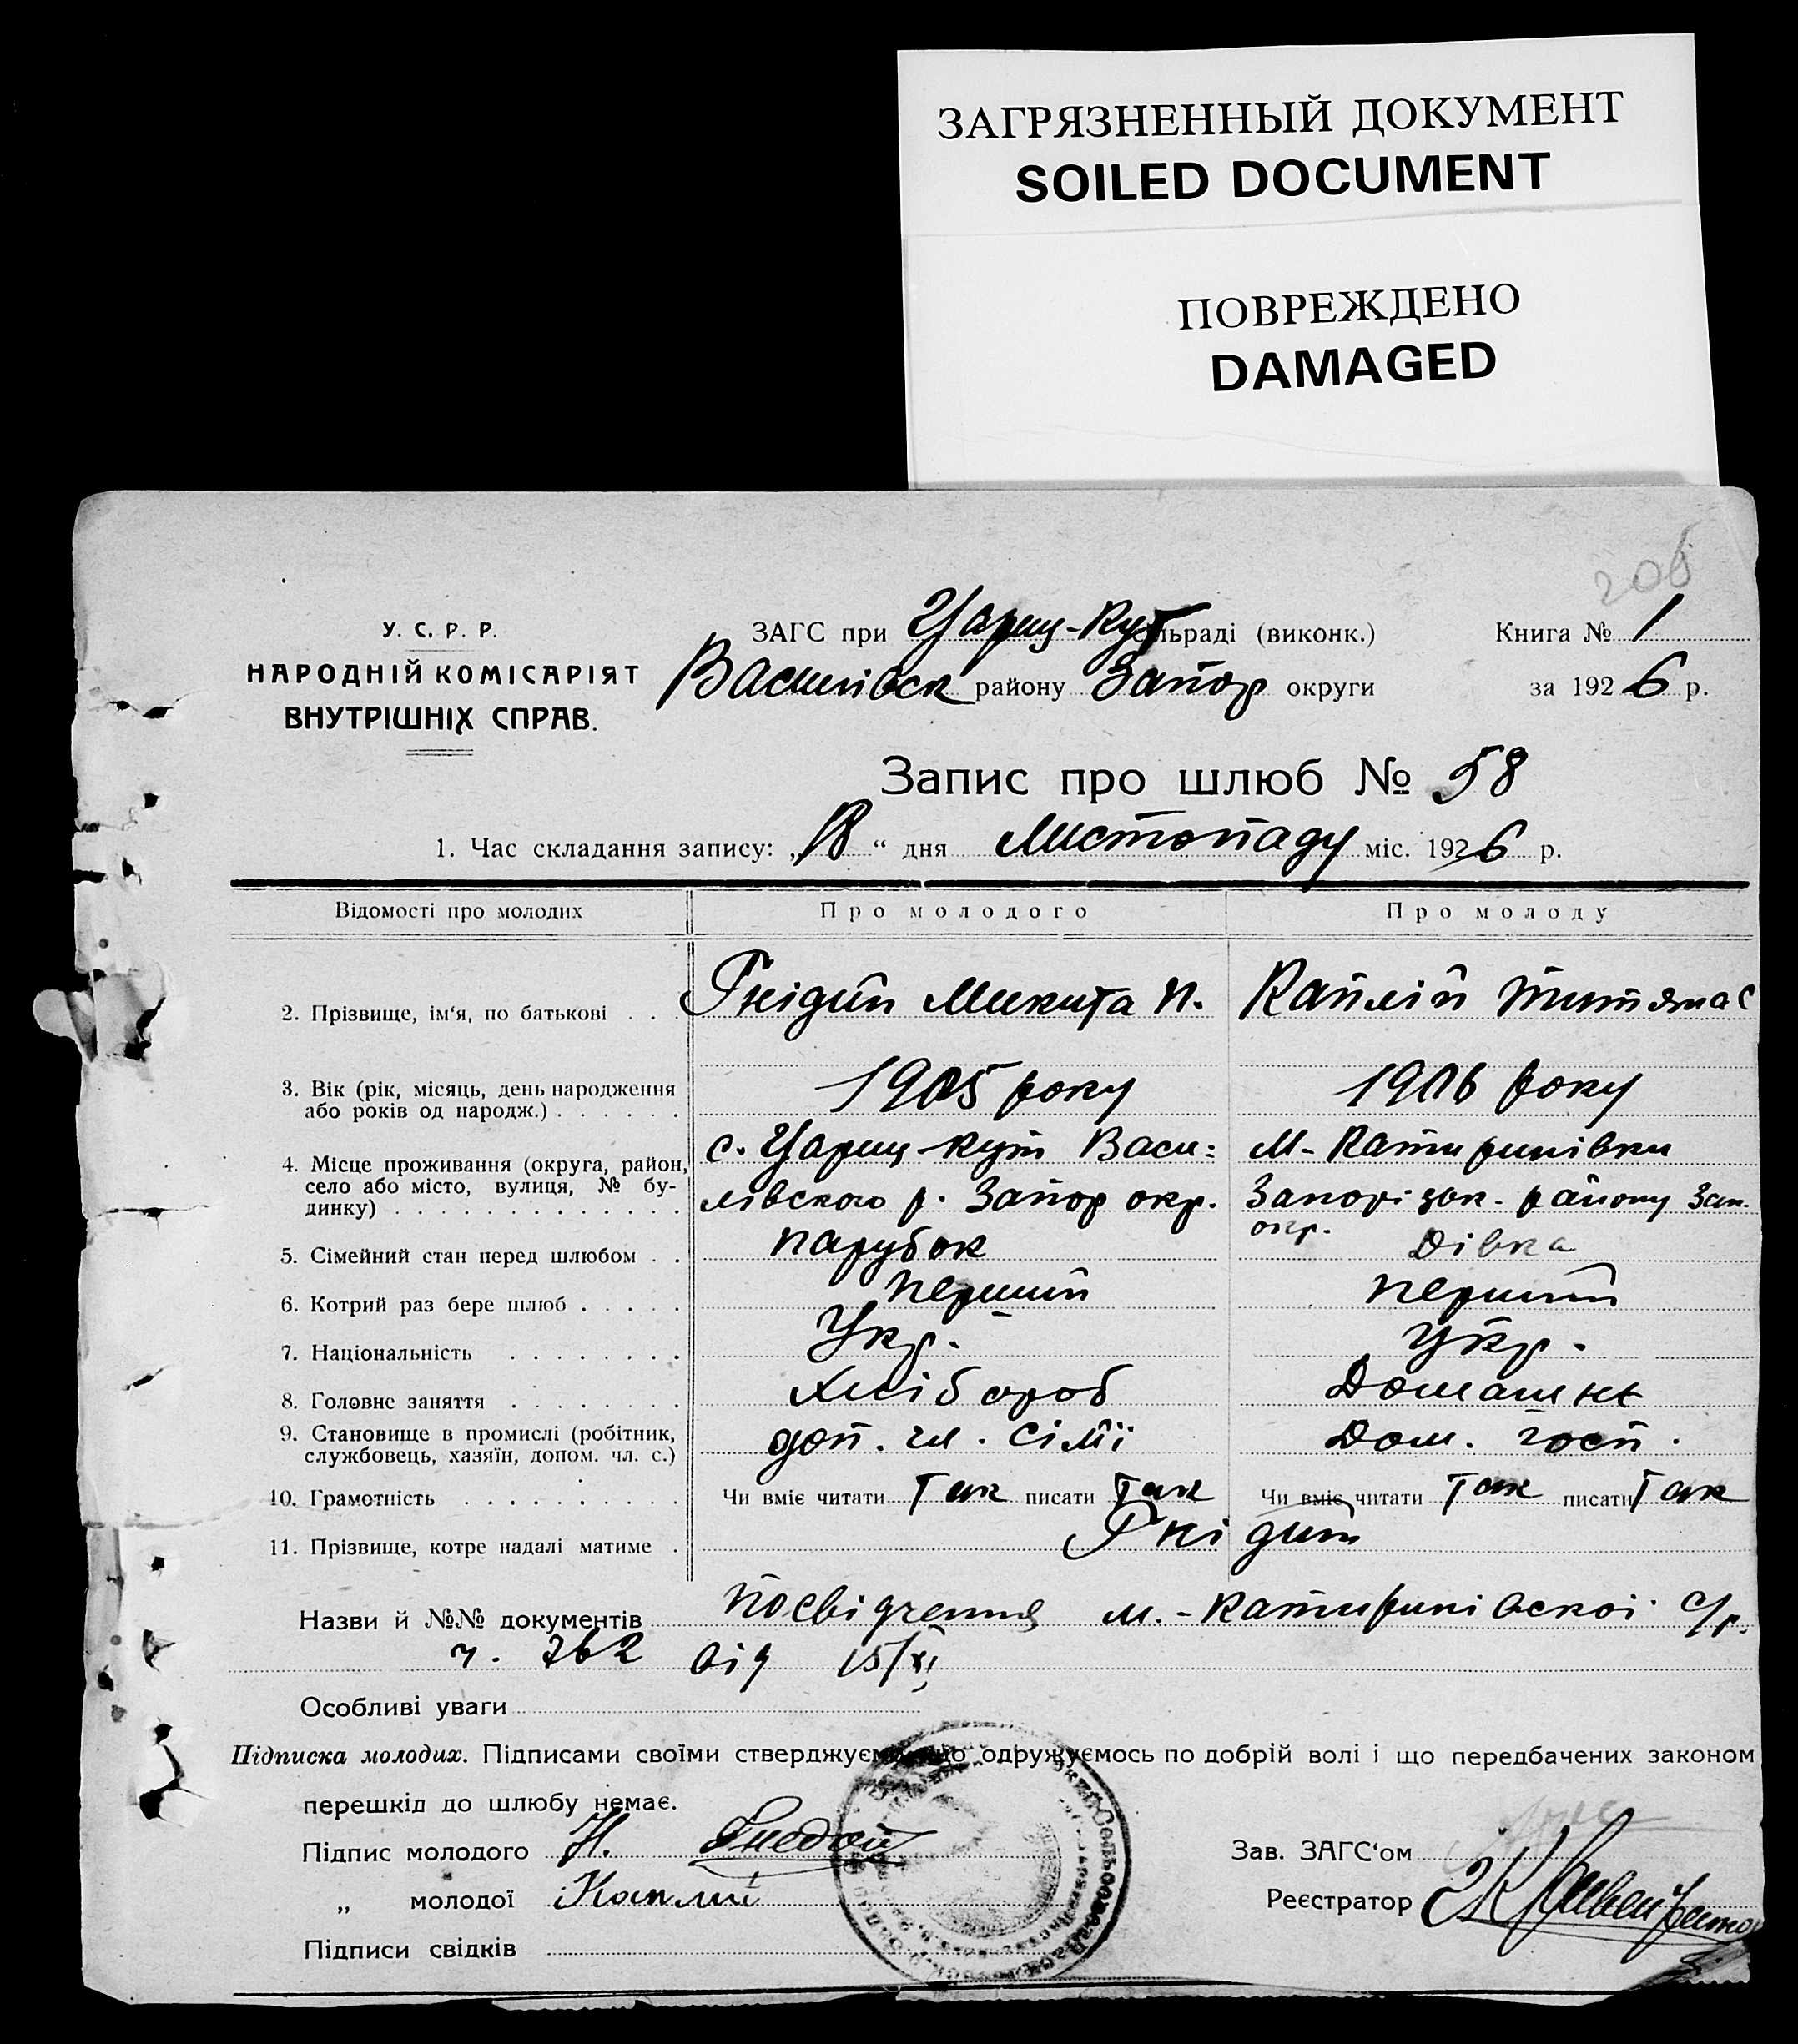 ЗАГРЯЗНЕННЫЙ ДОКУМЕНТ
SOILED DOCUMENT
ПОВРЕЖДЕНО
DAMAGED
206
У. С. Р. Р.
НАРОДНІЙ КОМІСАРІЯТ
ВНУТРІШНІХ СПРАВ.
ЗАГС при Цариц-Кут сільраді (виконк.)
Василівск району Запор округи
Книга № 1
за 1926 р.
Запис про шлюб № 58
1. Час складання запису: „18“ дня Листопаду міс. 1926 р.
Відомості про молодих Про молодого Про молоду
2. Прізвище, ім‘я, по батькові . . . Гнідий Микита П. Каплій Титяна С
3. Вік (рік, місяць, день народження або років од народж.) . . . . . . 1905 року 1906 року
4. Місце проживання (округа, район, село або місто, вулиця, № будинку) . . . . . . . . . . . . . с. Цариц-кут Васи:
лівского р. Запор окр.
М-Катиринівки
Запорізьк. району Зап.
окр.
5. Сімейний стан перед шлюбом . . парубок Дівка
6. Котрий раз бере шлюб . . . . . перший перший
7. Національність . . . . . . . . Укр. Укр.
8. Головне заняття . . . . . . . . Хлібороб Домашне
9. Становище в промислі (робітник, службовець, хазяїн, допом. чл. с.) доп. чл. сімї Дом. госп.
10. Грамотність . . . . . . . . . . Чи вміє читати Так писати Так Чи вміє читати Так писати Так
11. Прізвище, котре надалі матиме . Гнідий
Назви й №№ документів посвідчення м.-Катиринівскої с/р.
ч. 762 від 15/XI
Особливі уваги
Підписка молодих. Підписами своїми стверджуємо, що одружуємось по добрій волі і що передбачених законом
перешкід до шлюбу немає.
Підпис молодого Н. Гнедой
„ молодої Каплий
Підписи свідків
Зав. ЗАГС‘ом
Реєстратор